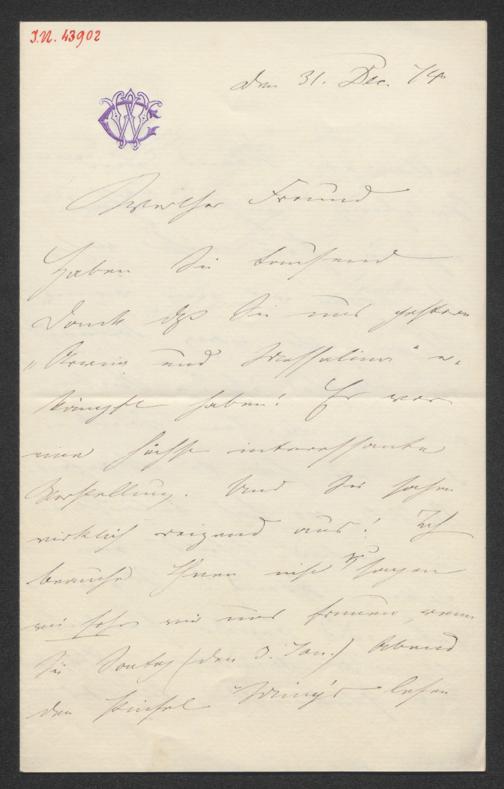 I.N. 43902
den 31. Dec. 74
Werther Freund
Haben Sie tausend
Dank daß Sie uns gestern
„Arria und Messalina“ er-
kämpft haben! Es war
eine höchst interessante
Vorstellung. Und Sie sahen
wirklich reizend aus! Ich
brauche Ihnen nicht zu sagen
wie sehr wir uns freuen, wenn
Sie Sontag (den 3. Jan.) Abend
den lesen